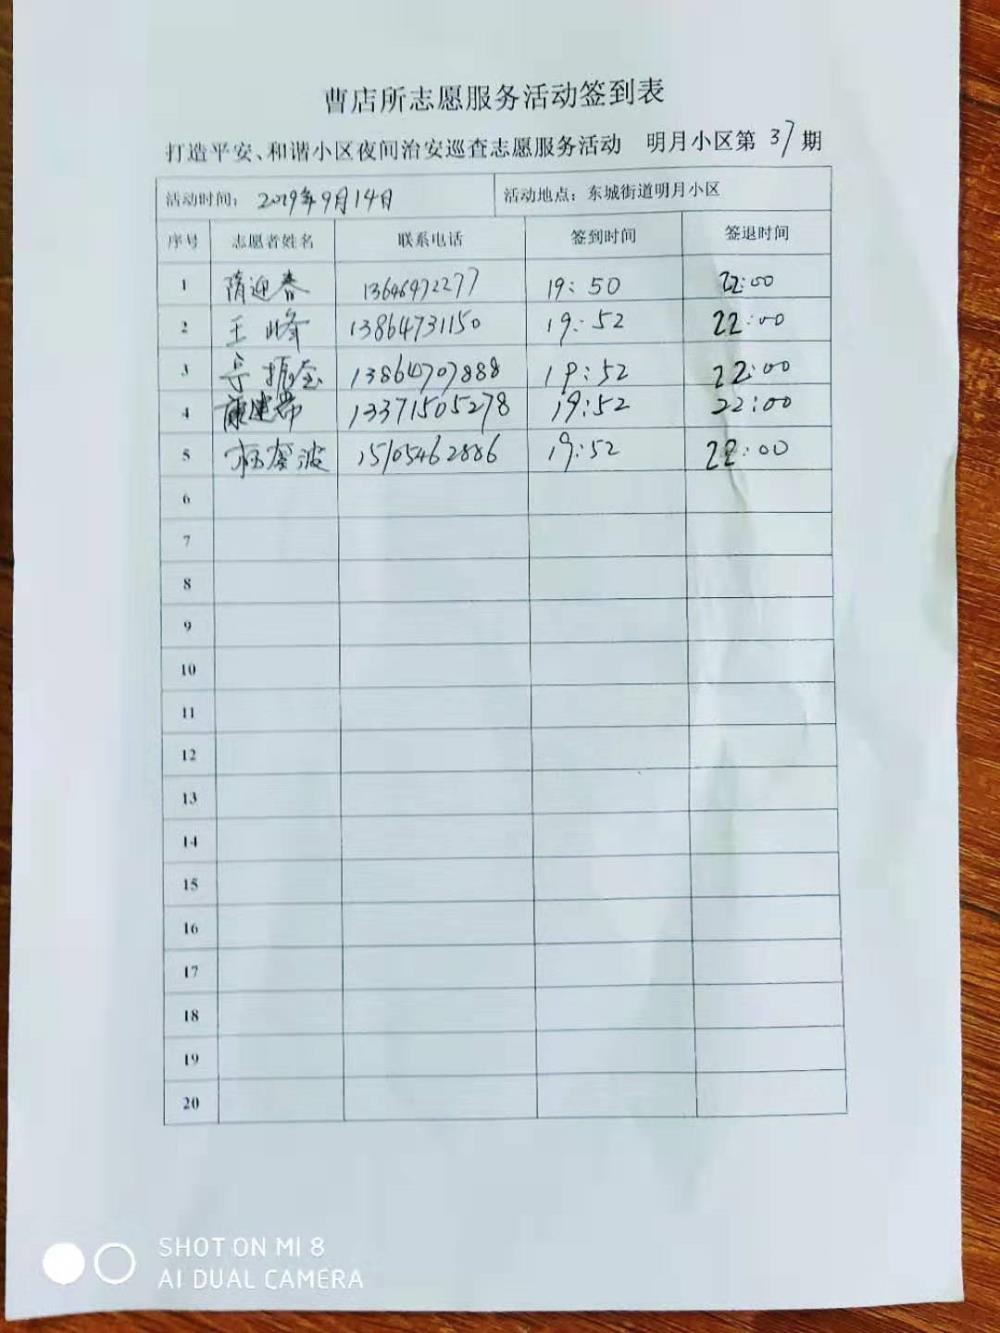 曹店所志愿服务活动签到表
打造平安、和谐小区夜间治安巡查志愿服务活动 明月小区第 37 期
活动时间： 2019年9月14日 活动地点：东城街道明月小区
序号 志愿者姓名 联系电话 签到时间 签退时间
1 隋迎春 13646472277 19:50 22:00
2 王峰 13864731150 19:52 22:00
3 13864707888 19:52 22:00
4 康建 13371505278 19:52 22:00
5 波 15105462886 19:52 22:00
6
7
8
9
10
11
12
13
14
15
16
17
18
19
20
SHOT ON MI 8
AI DUAL CAMERA